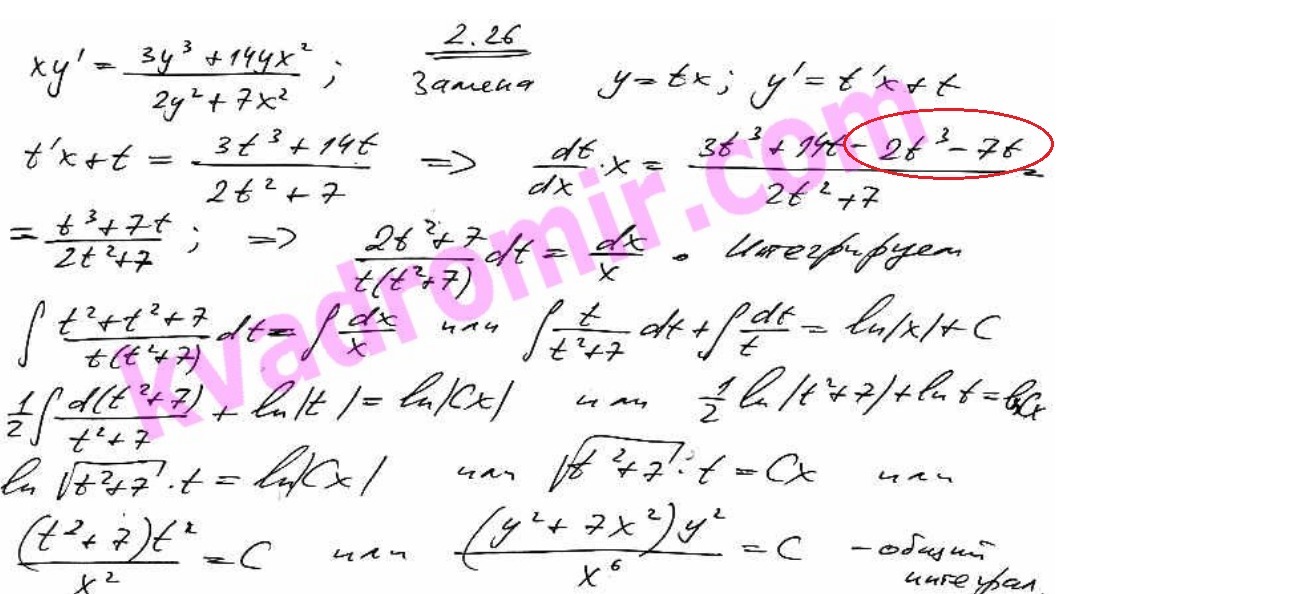 2.26
xy' = (3y³ + 14yx²)/(2y² + 7x²) ; Замена y = tx; y' = t'x + t
t'x + t = (3t³ + 14t)/(2t² + 7) => dt/dx · x = (3t³ + 14t - 2t³ - 7t)/(2t² + 7) =
= (t³ + 7t)/(2t² + 7) ; => (2t² + 7)/(t(t² + 7)) dt = dx/x . Интегрируем
∫ (t² + t² + 7)/(t(t² + 7)) dt = ∫ dx/x или ∫ t/(t² + 7) dt + ∫ dt/t = ln|x| + C
1/2 ∫ d(t² + 7)/(t² + 7) + ln|t| = ln|Cx| или 1/2 ln|t² + 7| + ln t = ln Cx
ln √(t² + 7) · t = ln|Cx| или √(t² + 7) · t = Cx или
((t² + 7)t²)/x² = C или ((y² + 7x²)y²)/x⁶ = C - общий
интеграл.
kvadromir.com